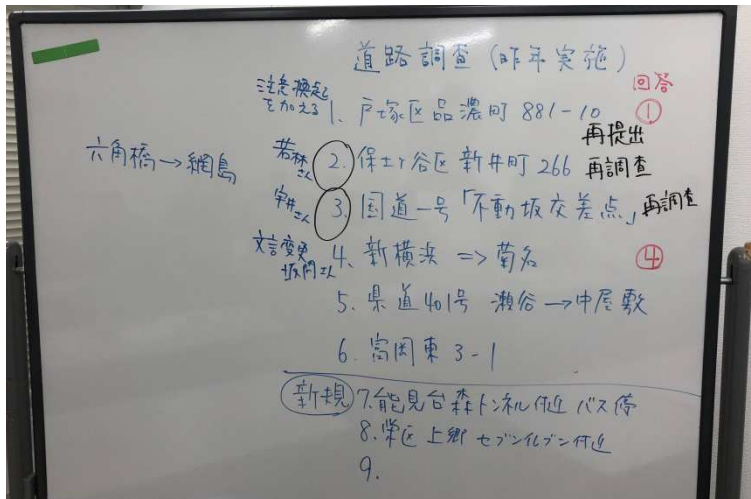 道路調査(昨年実施)
回答
注意喚起を
を加える
1. 戸塚区品濃町 881-10 ①
再提出
若林さん
2. 保土ヶ谷区 新井町 266 再調査
六角橋→綱島
宇井さん
3. 国道一号「不動坂交差点」再調査
文言変更
坂間さん
4. 新横浜 => 菊名 ④
5. 県道401号 瀬谷→中屋敷
6. 富岡東 3-1
新規 7. 能見台森トンネル付近 バス停
8. 栄区 上郷 セブンイレブン付近
9.